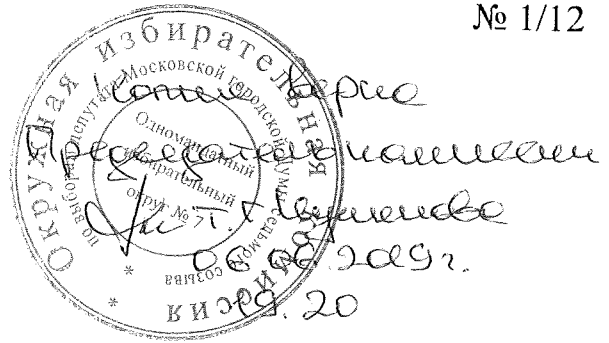 № 1/12
Окружная избирательная комиссия
по выборам депутата Московской городской Думы седьмого созыва
Одномандатный
избирательный
округ № 7
Копия верна
Председатель комиссии
06.2019г.
19.20